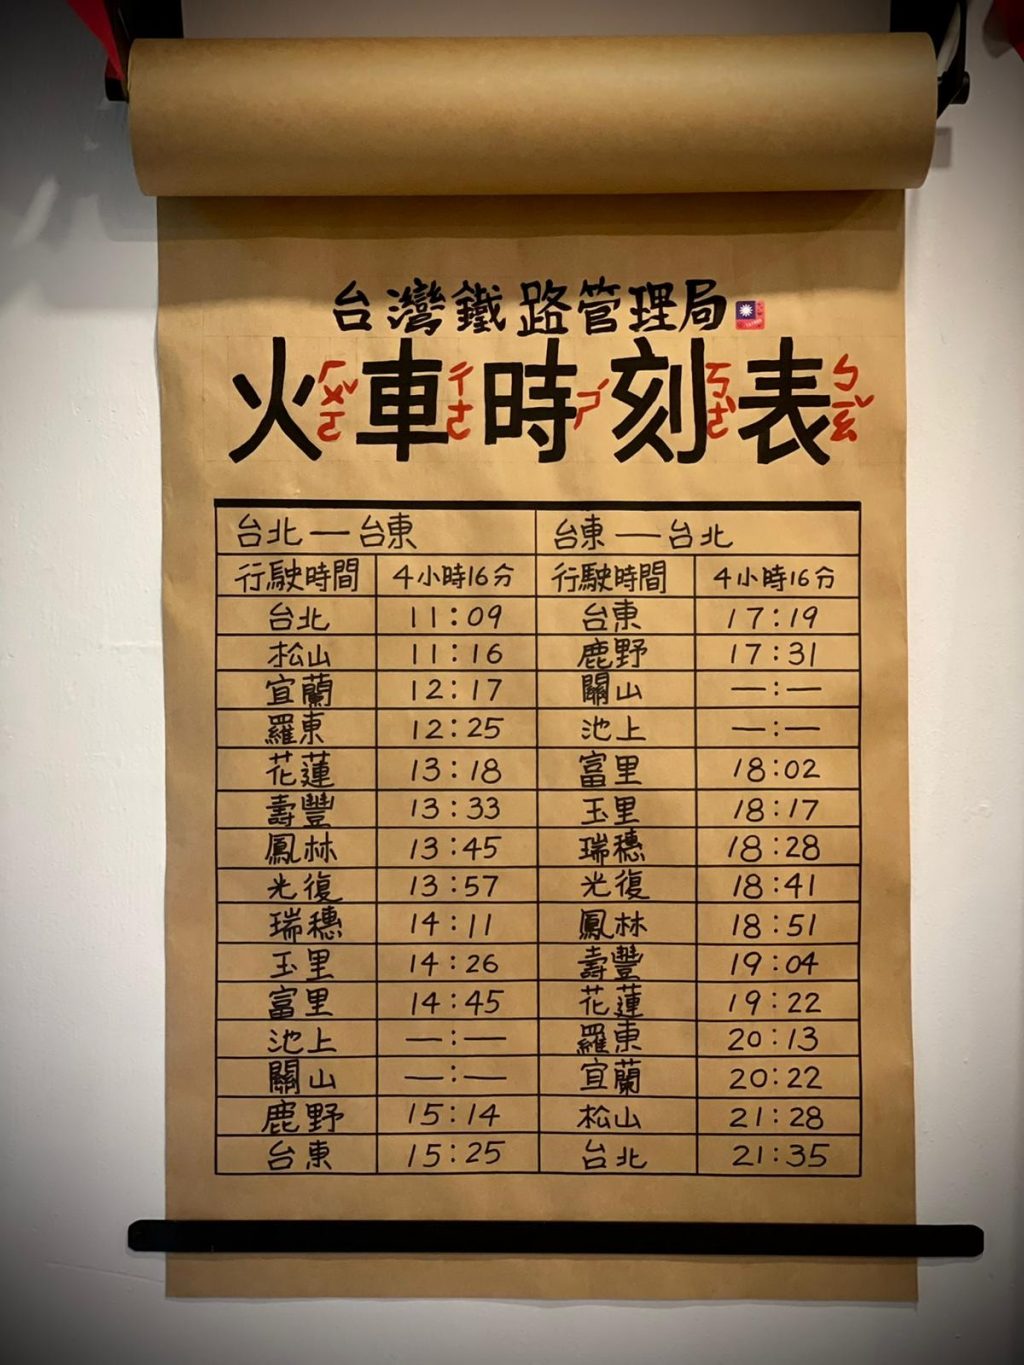 台灣鐵路管理局
火ㄏㄨㄛˇ車ㄔㄜ時ㄕˊ刻ㄎㄜˋ表ㄅㄧㄠˇ
台北—台東 台東—台北
行駛時間 4小時16分 行駛時間 4小時16分
台北 11:09 台東 17:19
松山 11:16 鹿野 17:31
宜蘭 12:17 關山 —:—
羅東 12:25 池上 —:—
花蓮 13:18 富里 18:02
壽豐 13:33 玉里 18:17
鳳林 13:45 瑞穗 18:28
光復 13:57 光復 18:41
瑞穗 14:11 鳳林 18:51
玉里 14:26 壽豐 19:04
富里 14:45 花蓮 19:22
池上 —:— 羅東 20:13
關山 —:— 宜蘭 20:22
鹿野 15:14 松山 21:28
台東 15:25 台北 21:35